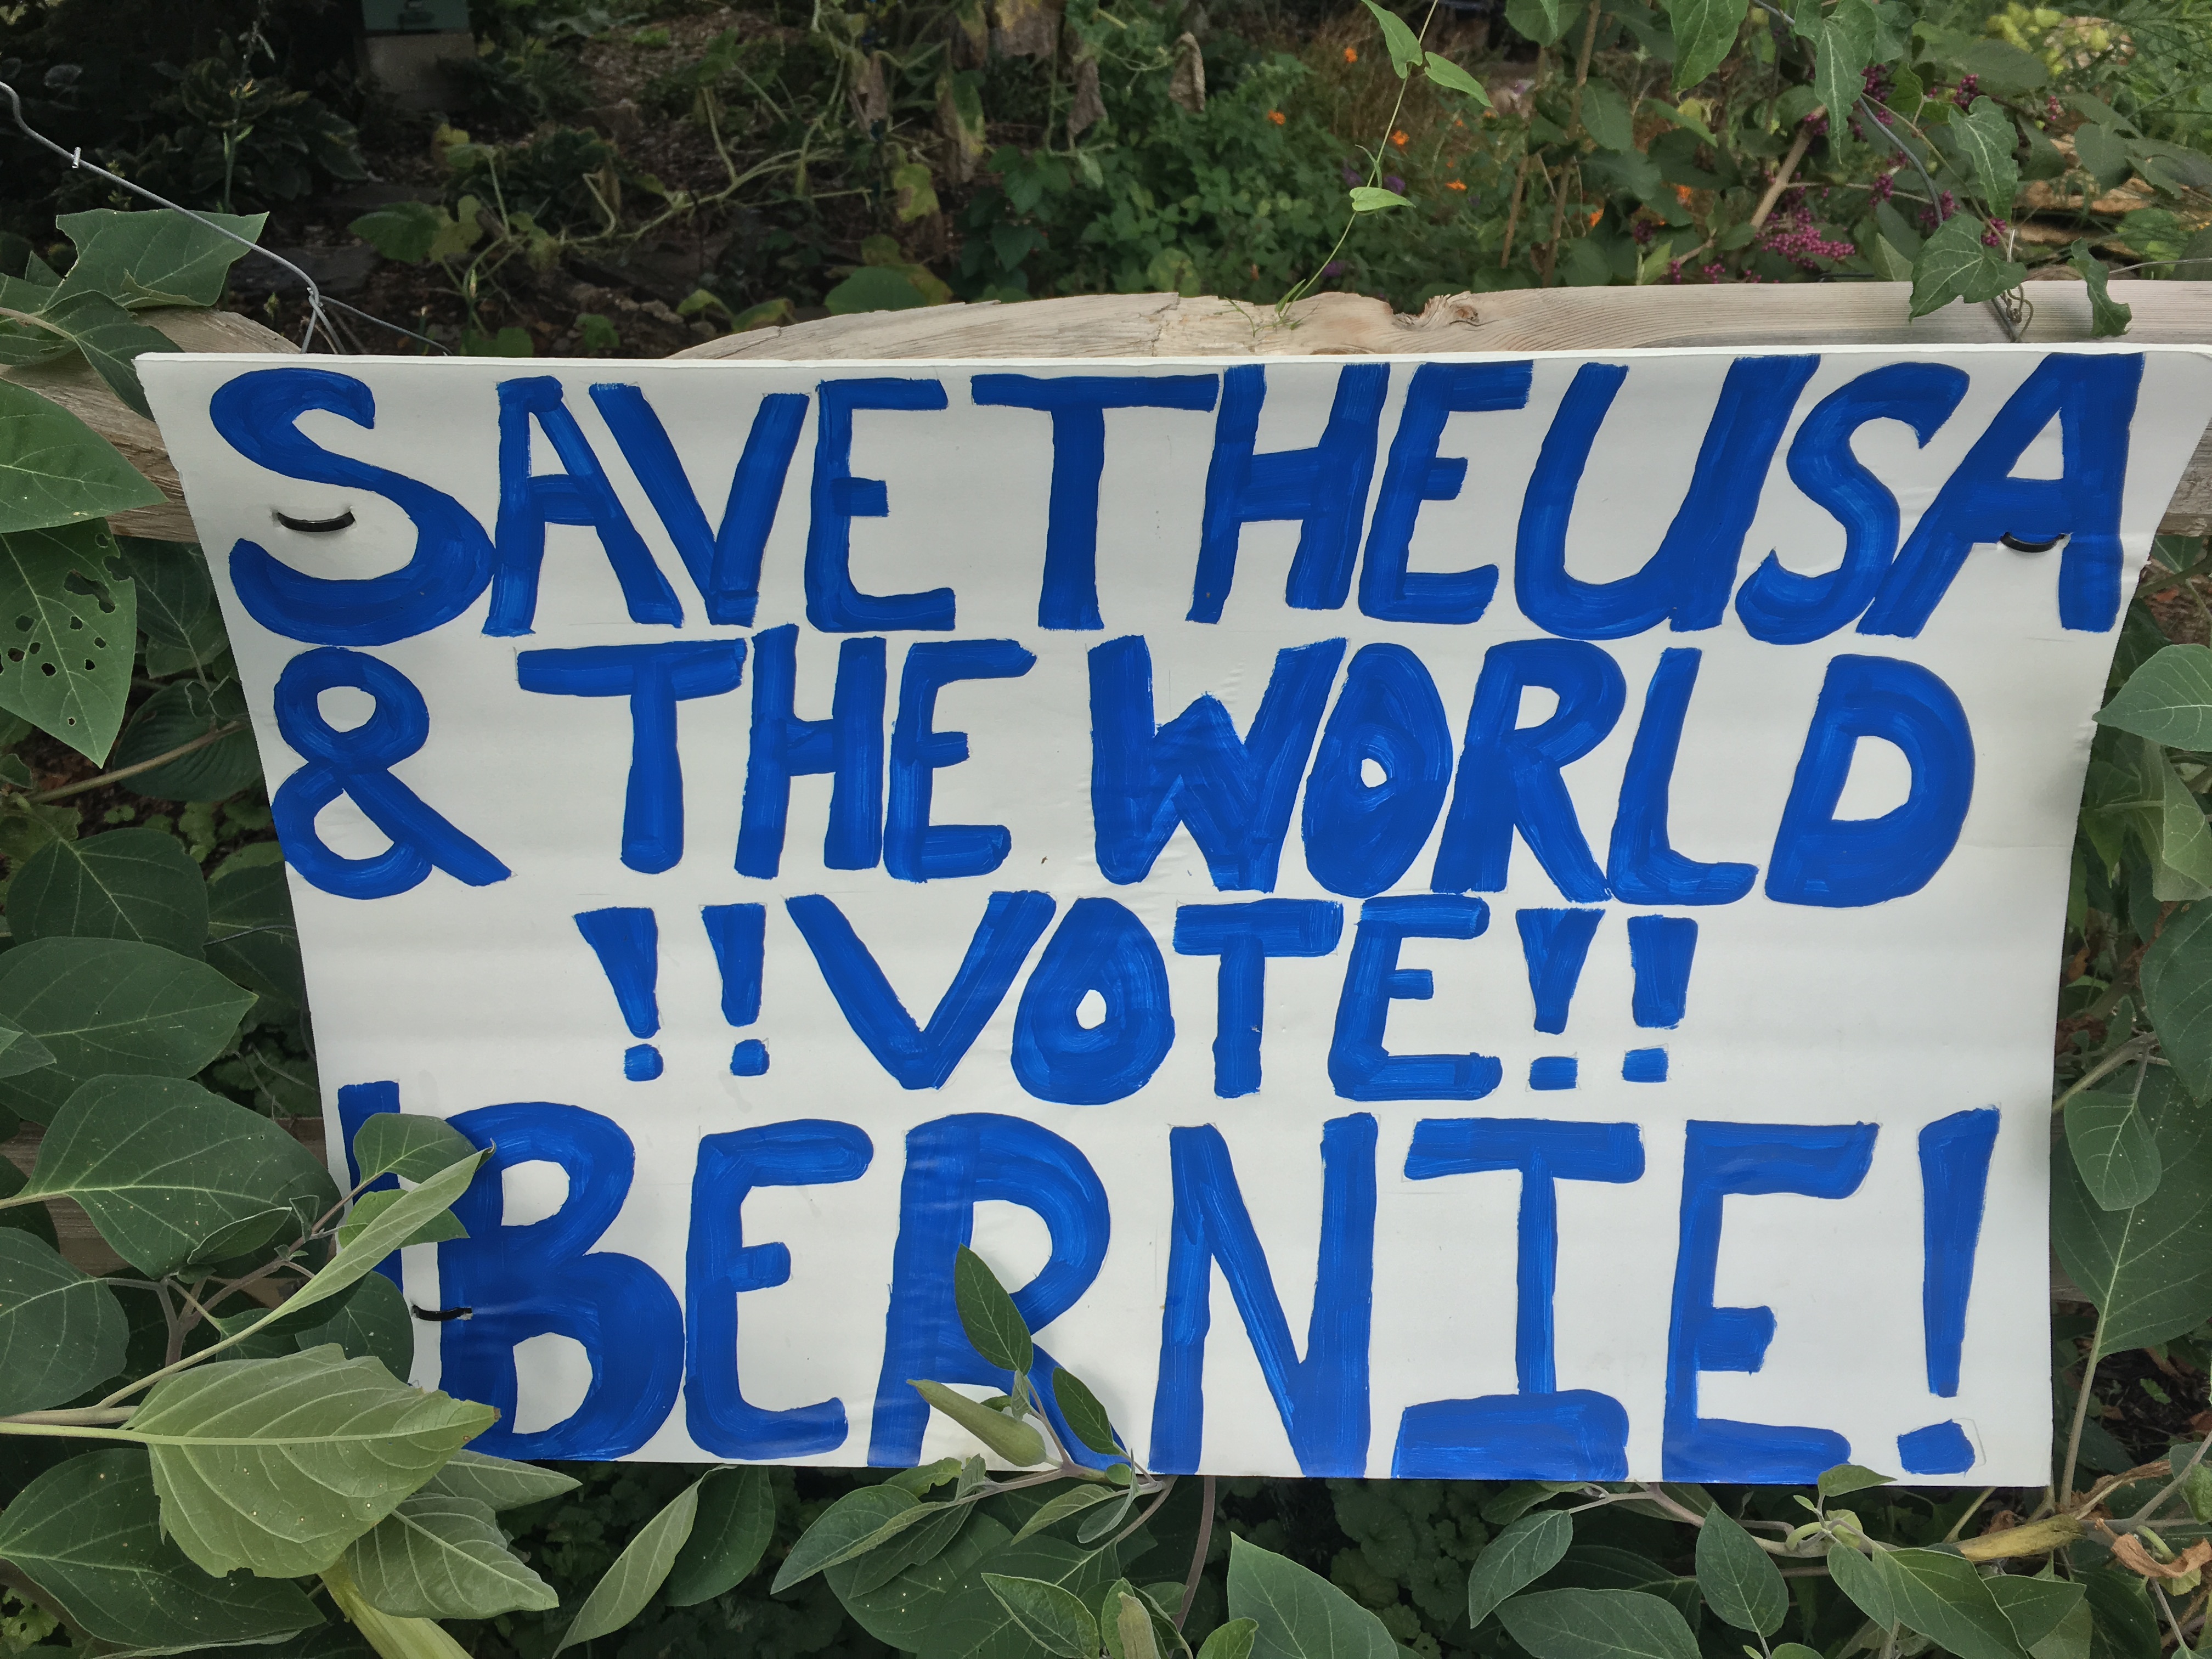 SAVE THE USA
& THE WORLD
!!VOTE!!
!BERNIE!